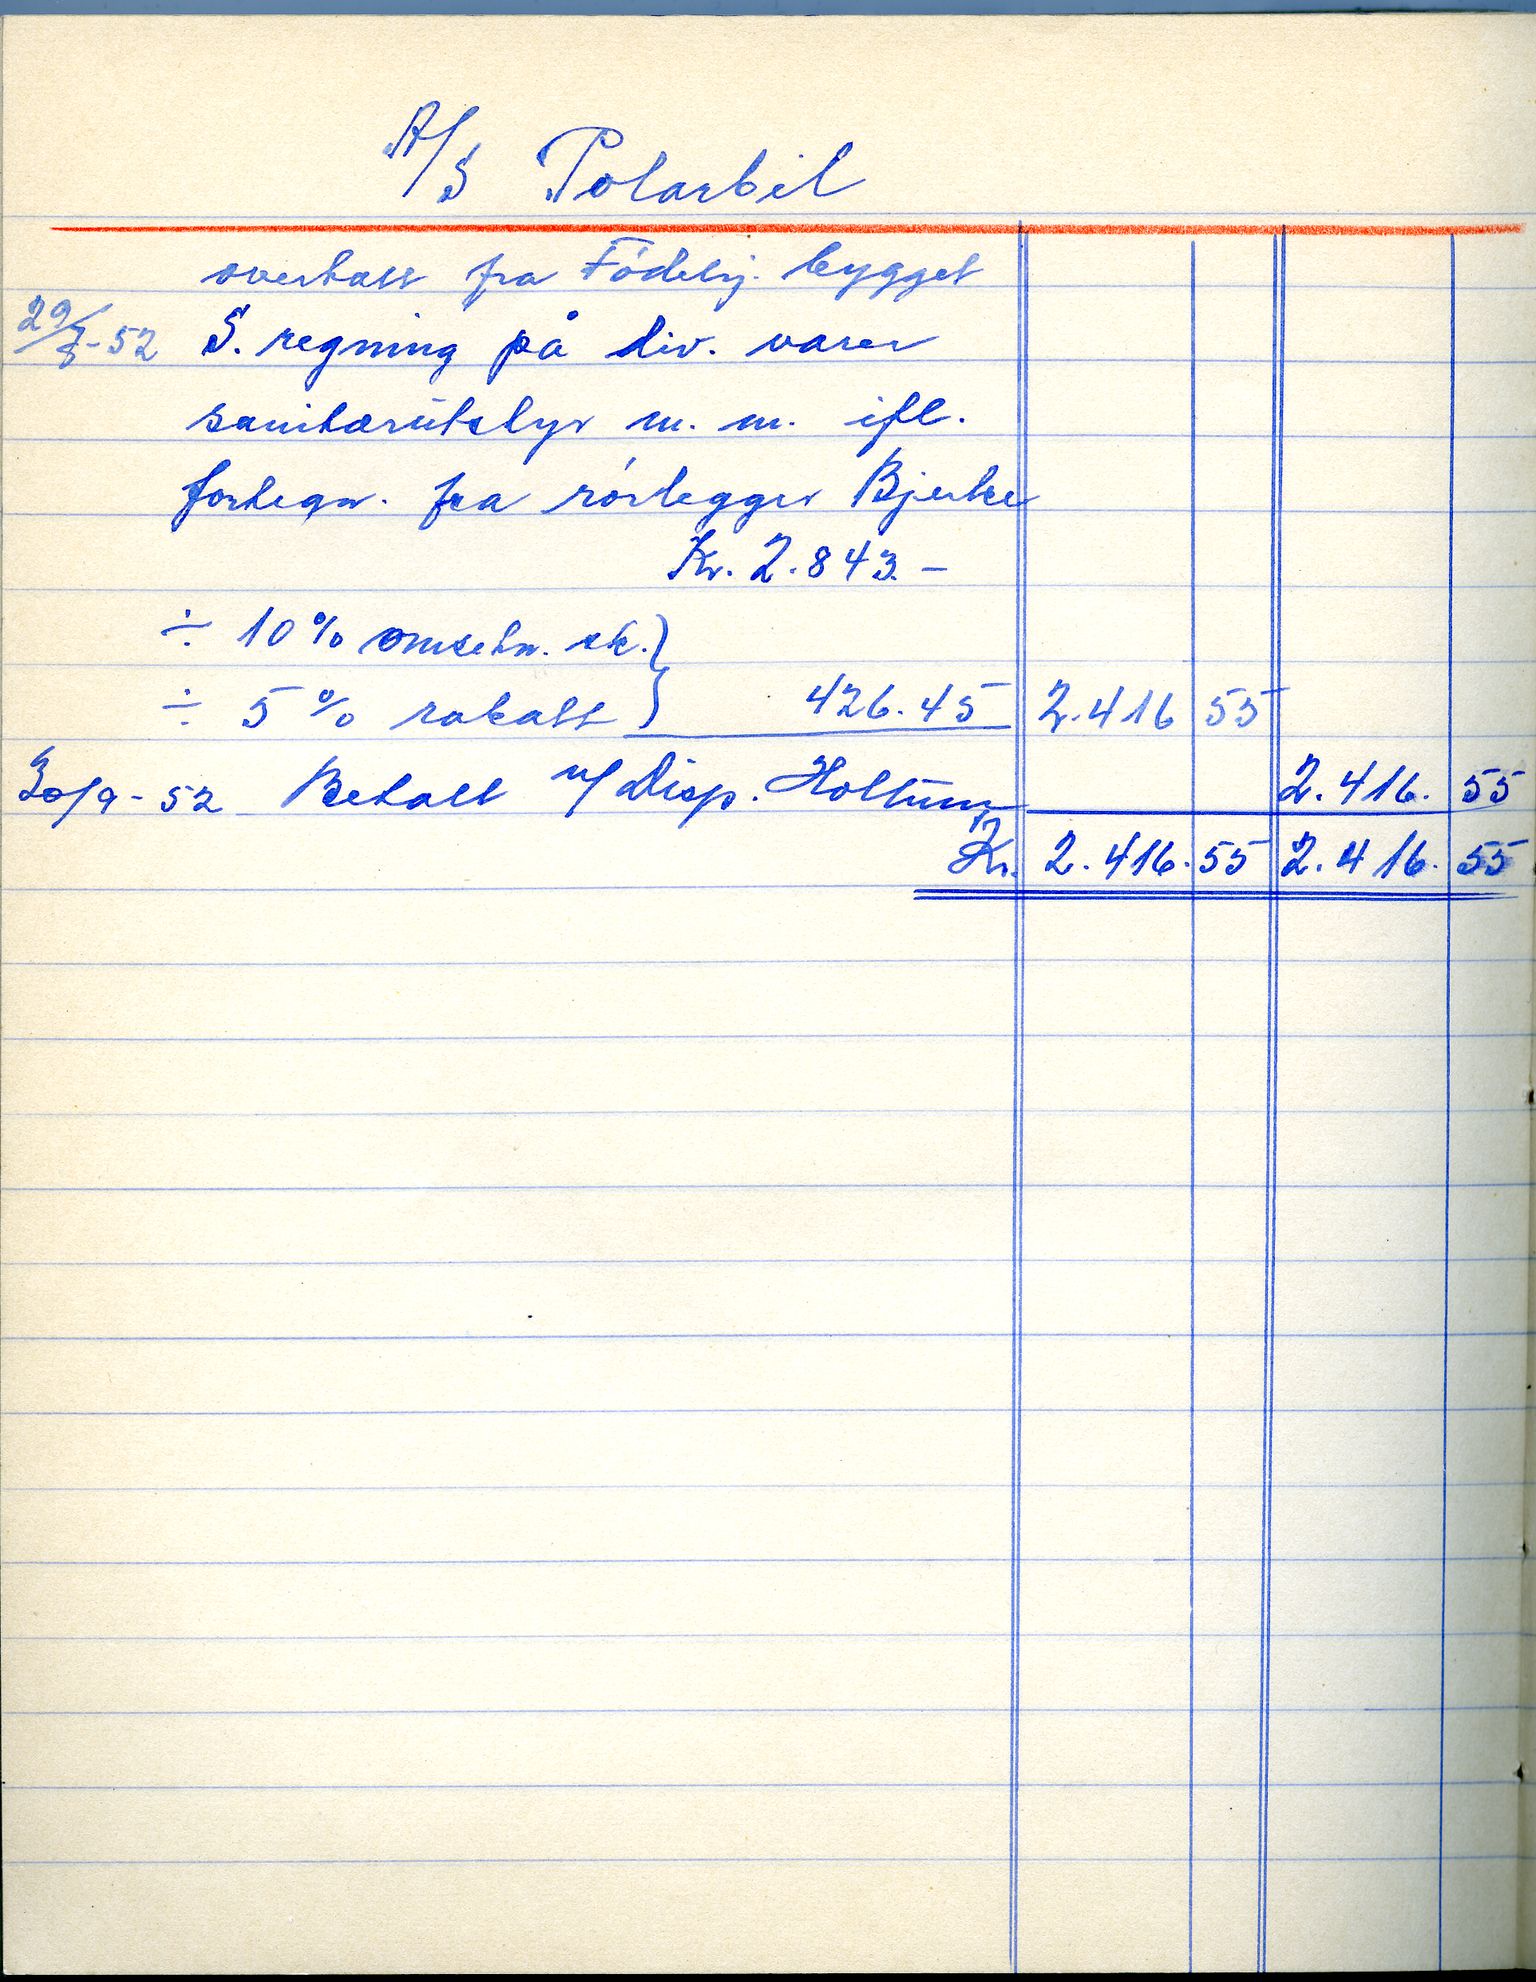 A/S Polarbil
overtatt fra Fødehj. bygget
29/8-52 S. regning på div. varer
sanitærutstyr m. m. ifl.
fortegn. fra rörlegger Bjerke
Kr. 2.843.-
÷ 10% omsetn. sk. }
÷ 5% rabatt } 426.45 2.416 55
30/9-52 Betalt v/ Disp. Holtum 2.416. 55
Kr. 2.416.55 2.416.55